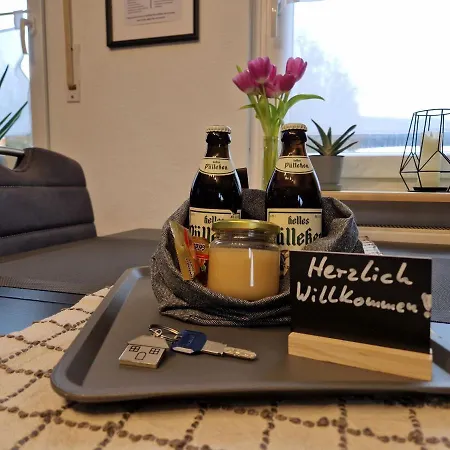 Pülleken
Pülleken
helles
Pülleken
helles
Pülleken
Herzlich
Willkommen!